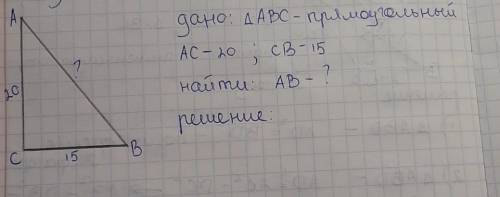 A
дано: ΔABC - прямоугольный
AC - 20 ; CB - 15
?
найти: AB - ?
20
решение:
C
15
B